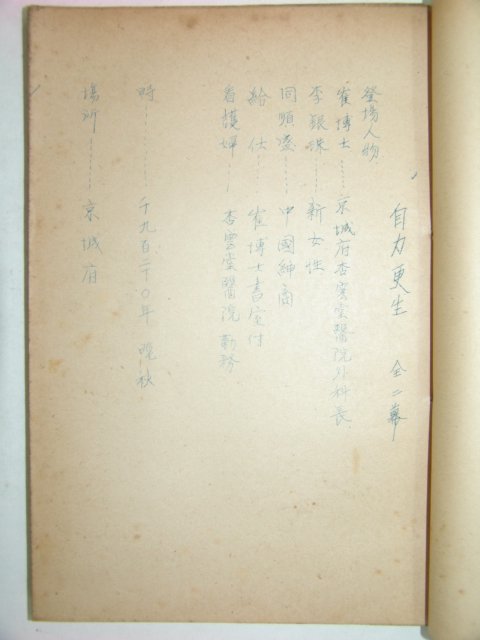 自力更生 全二幕
登場人物
崔博士……京城府杏雲堂醫院外科長
李銀珠……新女性
同順愛……中國紳商
給仕……崔博士書室付
看護婦……杏雲堂醫院勤務
時………千九百二〇年 晩秋
場所………京城府